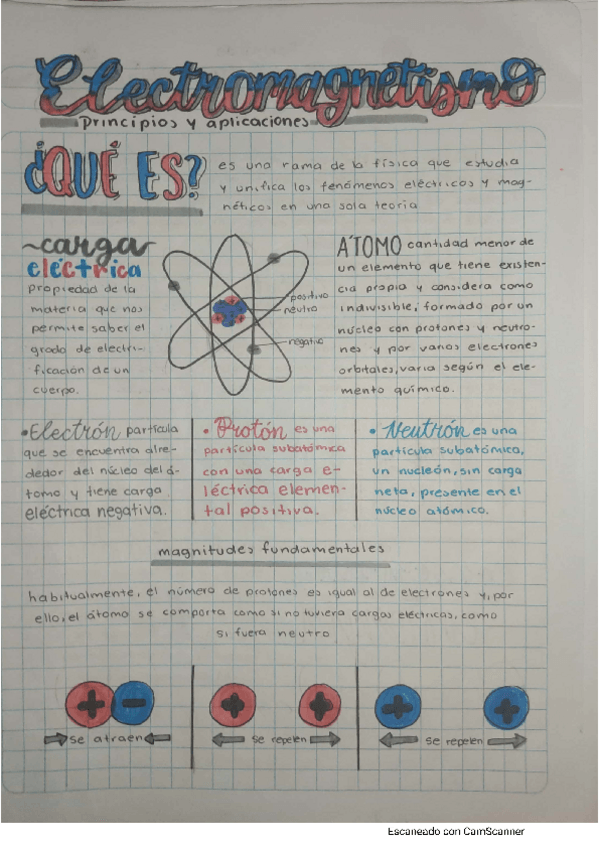 Electromagnetismo
Principios y aplicaciones
¿QUÉ ES?
es una rama de la física que estudia
y unifica los fenómenos eléctricos y mag-
néticos en una sola teoría
~carga
eléctrica
propiedad de la
materia que nos
permite saber el
grado de electri-
ficación de un
cuerpo.
positivo
neutro
negativo
ÁTOMO cantidad menor de
un elemento que tiene existen-
cia propia y considera como
indivisible, formado por un
núcleo con protones y neutro-
nes y por varios electrones
orbitales, varia según el ele-
mento químico.
• Electrón partícula
que se encuentra alre-
dedor del núcleo del á-
tomo y tiene carga
eléctrica negativa.
• Protón es una
partícula subatómica
con una carga e-
léctrica elemen-
tal positiva.
• Neutrón es una
partícula subatómica,
un nucleón, sin carga
neta, presente en el
núcleo atómico.
magnitudes fundamentales
habitualmente, el número de protones es igual al de electrones y, por
ello, el átomo se comporta como si no tuviera cargas eléctricas, como
si fuera neutro
+ -
se atraen
+ +
se repelen
+ +
se repelen
Escaneado con CamScanner